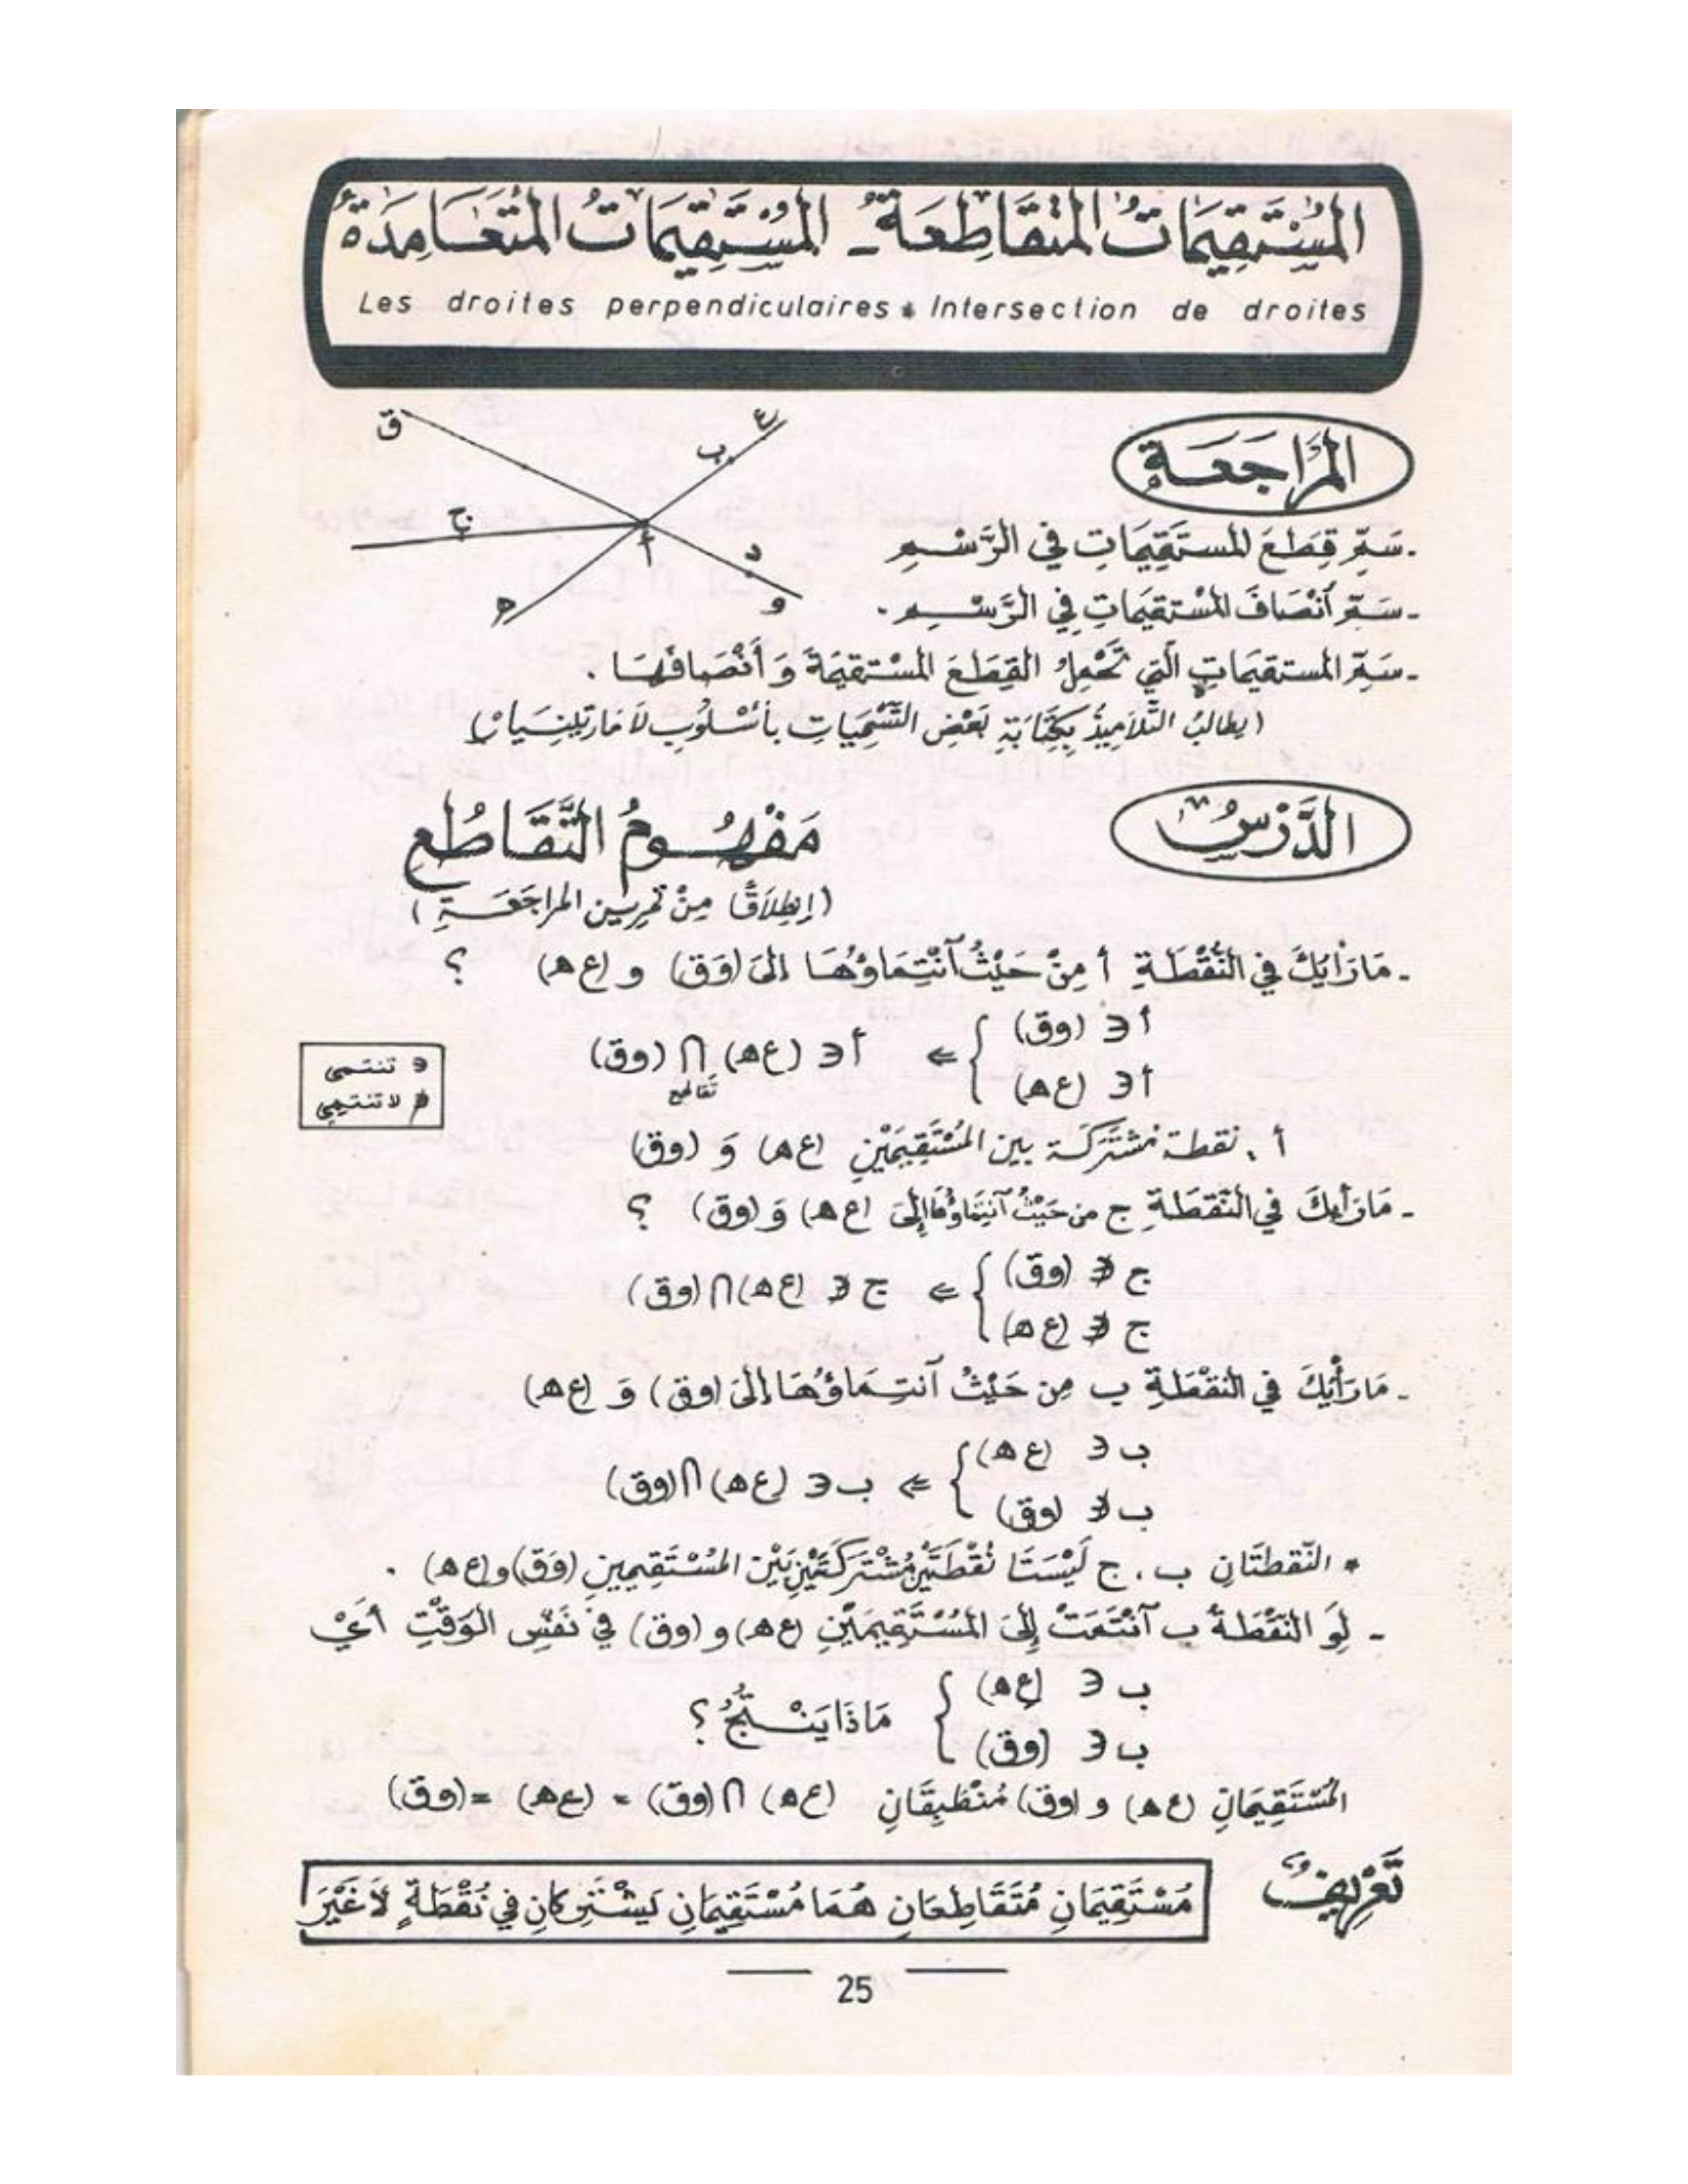 المُسْتَقِيمَاتُ المُتَقَاطِعَةُ - المُسْتَقِيمَاتُ المُتَعَامِدَةُ
Les droites perpendiculaires * Intersection de droites
ق
ع
ب
ج
أ
د
ه
و
المُرَاجَعَةُ
- سَمِّ قِطَعَ المستَقِيمَاتِ في الرَّسْمِ
- سَمِّ أَنْصَافَ المُسْتقِيمَاتِ فِي الرَّسْمِ .
- سَمِّ المستقيمَاتِ الَّتِي تَحْمِلُ القِطَعَ المسْتقِيمَةَ وَ أَنْصَافَهَا .
(يطالبُ التَّلَامِيذُ بِكِتَابَةِ بَعْضِ التَّسْمِيَاتِ بأُسْلُوبِ لَامَارْتِينِيَار)
الدَّرْسُ
مَفْهُومُ التَّقَاطُعِ
(إنطِلَاقًا مِنْ تمرين المراجَعَةِ)
- مَا رَأْيُكَ في النُّقْطَةِ أ مِنْ حَيْثُ آنْتِمَاؤُهَا إلَى (وَق) و (ع ه) ؟
أ ∋ (وق)
أ ∋ (ع ه)
⇐ أ ∋ (ع ه) ∩ (وق)
تقاطع
∋ تنتمي
∌ لا تنتمِي
أ . نقطة مُشتَرَكَة بين المُسْتَقِيمَيْنِ (ع ه) وَ (وق)
- مَا رَأْيكَ في النّقطَةِ ج من حَيْثُ آنتِمَاؤُهَا إلَى (ع ه) وَ (وق) ؟
ج ∌ (وق)
ج ∌ (ع ه)
⇐ ج ∌ (ع ه) ∩ (وق)
- مَا رَأْيُكَ في النّقْطَةِ ب مِن حَيْثُ آنتِمَاؤُهَا إلَى (وق) وَ (ع ه)
ب ∋ (ع ه)
ب ∌ (وق)
⇐ ب ∋ (ع ه) ∩ (وق)
* النّقطتَانِ ب ، ج لَيْسَتَا نُقْطَتَيْنِ مُشْتَرَكَتَيْنِ بَيْن المُسْتَقِيمينِ (وَق) و (ع ه) .
- لَوِ النّقْطَةُ ب آنْتَمَتْ إِلَى المُسْتَقِيمَيْنِ (ع ه) و (وق) في نَفْسِ الوَقْتِ أَيْ
ب ∋ (ع ه)
ب ∋ (وق)
مَاذَا يَنْتُجُ ؟
المُسْتَقِيمَانِ (ع ه) و (وق) مُنْطَبِقَانِ (ع ه) ∩ (وق) = (ع ه) = (وق)
تَعْرِيفٌ
مُسْتَقِيمَانِ مُتَقَاطِعَانِ هُمَا مُسْتَقِيمَانِ يَشْتَرِكَانِ في نُقْطَةٍ لَا غَيْرَ
25